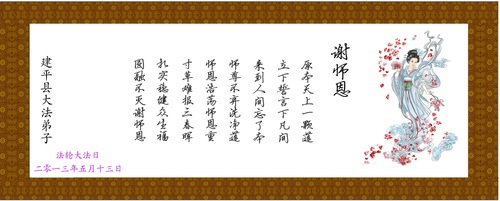 谢师恩
原本天上一颗莲
立下誓言下凡间
来到人间忘了本
师尊不弃洗净莲
师恩浩荡师恩重
寸草难报三春晖
扎实稳健众生福
圆融不灭谢师恩
建平县大法弟子
法轮大法日
二零一三年五月十三日